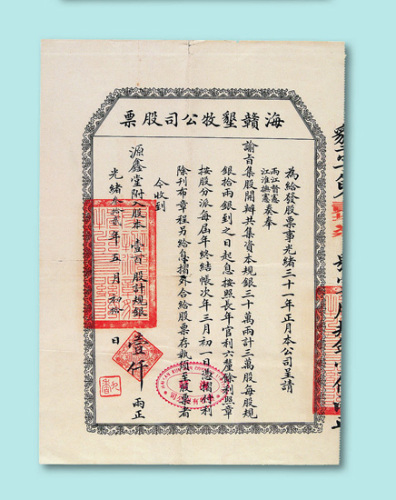 海贛墾牧公司股票
為給發股票事光緒三十一年正月本公司呈請
兩江督憲
江淮撫憲
奏奉
諭旨集股開辦共集資本規銀三十萬兩計三萬股每股規
銀拾兩銀到之日起息按照長年官利六釐餘利照章
按股分派每屆年終結帳次年三月初一日憑摺付利
除刊布章程另給息摺外合給股票存執須至股票者
今收到
源鑫堂附入股本壹百股計規銀
壹仟兩正
光緒叁拾貳年五月日